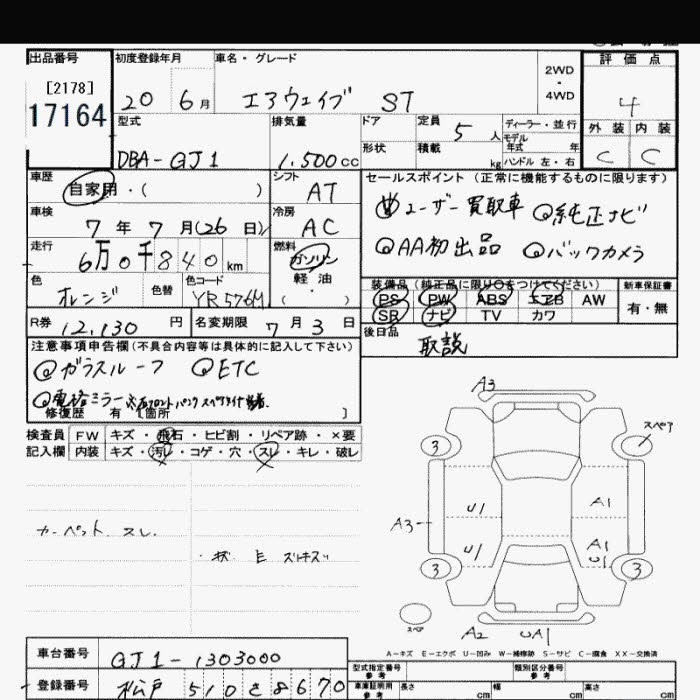 出品番号 初度登録年月 車名・グレード 評価点
[2178]
17164
20 6月 エアウェイブ ST 2WD・4WD 4
型式 排気量 ドア 定員 5人 ディーラー・並行 外装 内装
形状 積載 kg モデル年式 年
ハンドル 左・右
DBA-GJ1 1.500cc C C
車歴 自家用・( ) シフト AT
セールスポイント(正常に機能するものに限ります)
車検 7年7月(26日) 冷房 AC
ユーザー買取車 純正ナビ
AA初出品 バックカメラ
走行 6万0千840km 燃料 ガソリン
軽油
・( )
色 オレンジ 色替 色コード YR576M
装備品(純正品に限り○をつけてください) 新車保証書
PS PW ABS エアB AW 有・無
SR ナビ TV カワ
R券 12,130円 名変期限 7月3日
後日品 取説
注意事項申告欄(不具合内容等は具体的に記入して下さい)
ガラスルーフ ETC
修復歴 有 [箇所 ]
検査員 FW キズ・飛石・ヒビ割・リペア跡・×要
記入欄 内装 キズ・汚レ・コゲ・穴・スレ・キレ・破レ
カーペット スレ
A3
3 スペア
U1 A1
A3
U1 A1
U1
3 3
スペア
A2 UA1
A-キズ E-エクボ U-凹み W-補修跡 S-サビ C-腐食 XX-交換済
車台番号 GJ1-1303000
型式指定番号 参考 類別区分番号 参考
登録番号 松戸 510 さ 8670
車庫証明用 参考 長さ cm 幅 cm 高さ cm